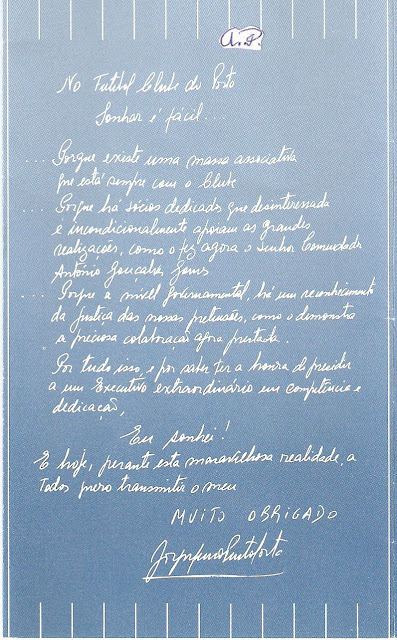 A.P.
No Futebol Clube do Porto
Sonhar é fácil...
... Porque existe uma massa associativa
que está sempre com o Clube
... Porque há sócios dedicados que desinteressada
e incondicionalmente apoiam as grandes
realizações, como o fez agora o Senhor Comendador
António Gonçalves Gomes
... Porque a nível governamental, há um reconhecimento
da justiça das nossas pretensões, como o demonstra
a preciosa colaboração agora prestada.
Por tudo isso, e por saber ter a honra de presidir
a um Executivo extraordinário em competência e
dedicação,
Eu sonhei!
E hoje, perante esta maravilhosa realidade, a
todos quero transmitir o meu
MUITO OBRIGADO